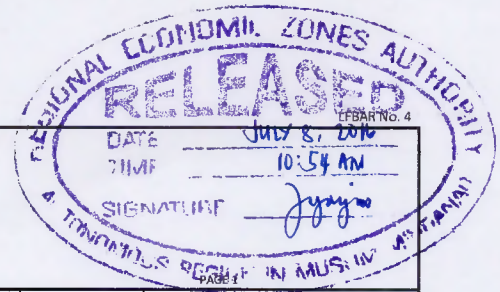 REGIONAL ECONOMIC ZONES AUTHORITY
RELEASED
LFBAR No. 4
DATE JULY 8, 2016
TIME 10:54 AM
SIGNATURE
AUTONOMOUS REGION IN MUSLIM MINDANAO
PAGE 1